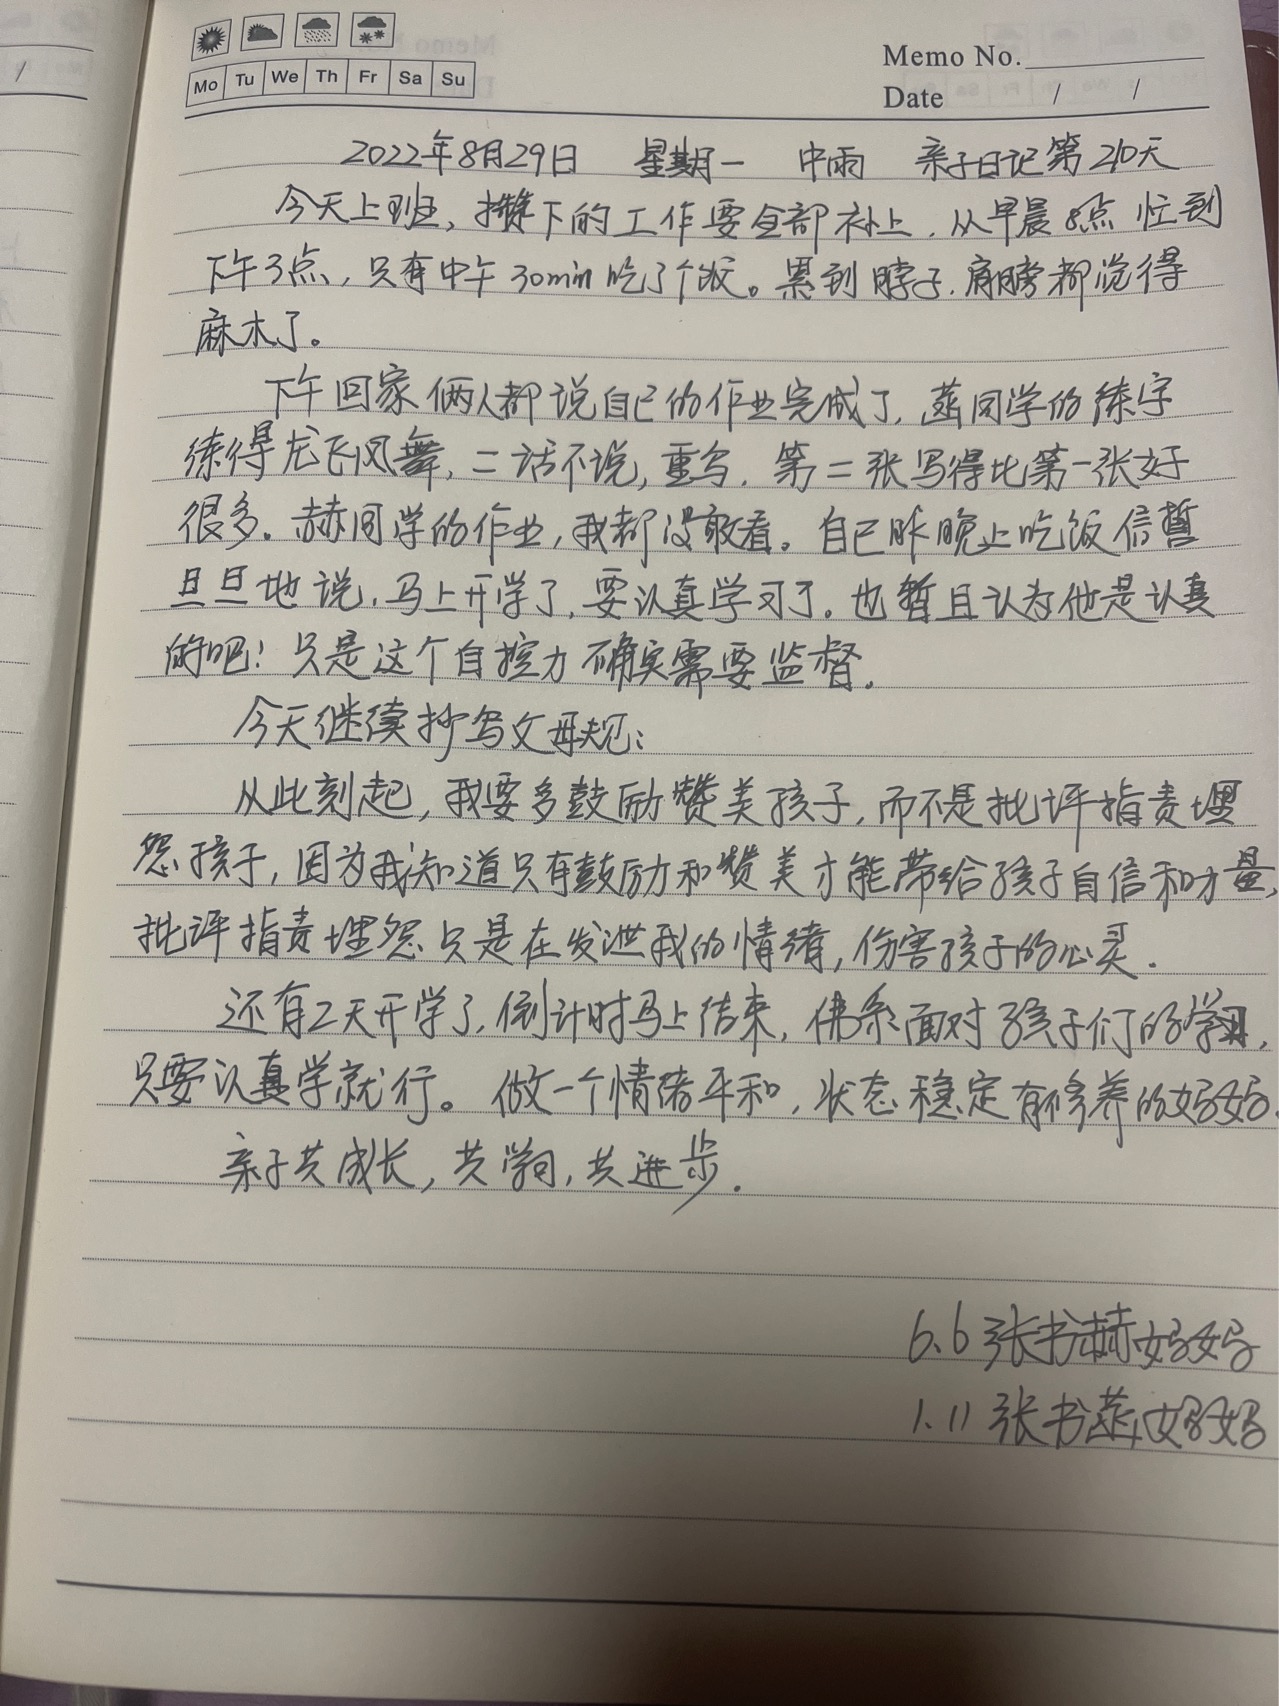 Mo Tu We Th Fr Sa Su
Memo No.
Date / /
2022年8月29日 星期一 中雨 亲子日记第210天
今天上班，攒下的工作要全部补上，从早晨8点忙到
下午3点，只有中午30min吃了个饭。累到脖子，肩膀都觉得
麻木了。
下午回家俩人都说自己的作业完成了，菡同学的练字
练得龙飞凤舞，二话不说，重写，第二张写得比第一张好
很多。赫同学的作业，我都没敢看。自己昨晚上吃饭信誓
旦旦地说，马上开学了，要认真学习了。也暂且认为他是认真
的吧！只是这个自控力确实需要监督。
今天继续抄写父母规：
从此刻起，我要多鼓励赞美孩子，而不是批评指责埋
怨孩子，因为我知道只有鼓励和赞美才能带给孩子自信和力量，
批评指责埋怨只是在发泄我的情绪，伤害孩子的心灵.
还有2天开学了，倒计时马上结束，佛系面对孩子们的学习，
只要认真学就行。做一个情绪平和，状态稳定有修养的妈妈.
亲子共成长，共学习，共进步.
6.6 张书赫妈妈
1.11 张书菡妈妈